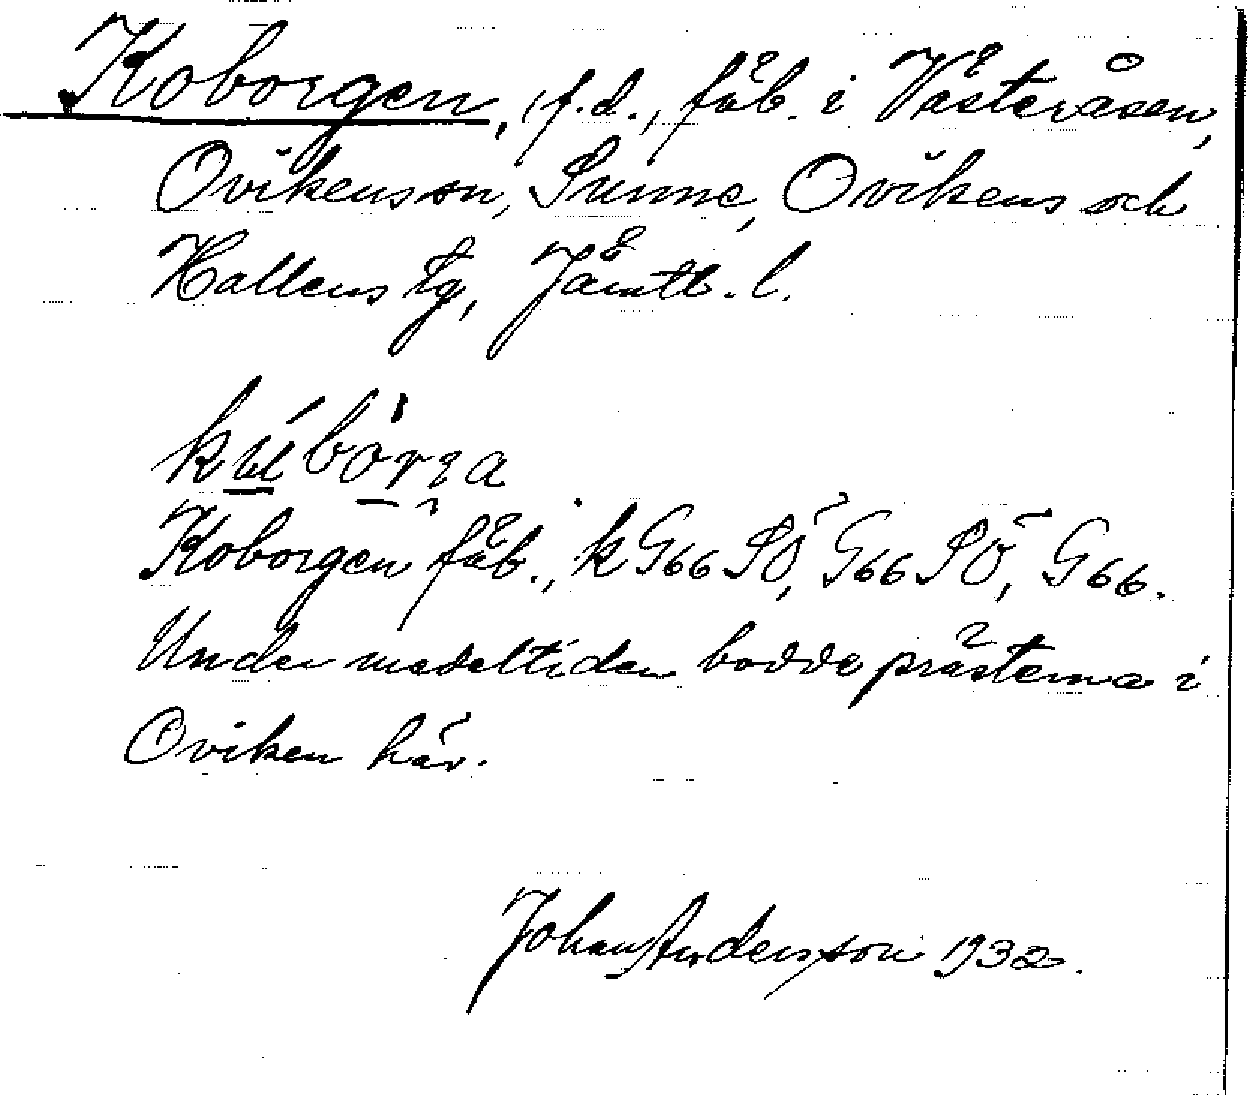 Koborgen, f.d., fäb. i Västeråsen,
Ovikens sn, Sunne, Ovikens och
Hallens tg, Jämtl. l.
Koborgen fäb., k G66 SÖ, G66 SÖ, G66.
Under medeltiden bodde prästerna i
Oviken här.
Johan Andersson 1932.